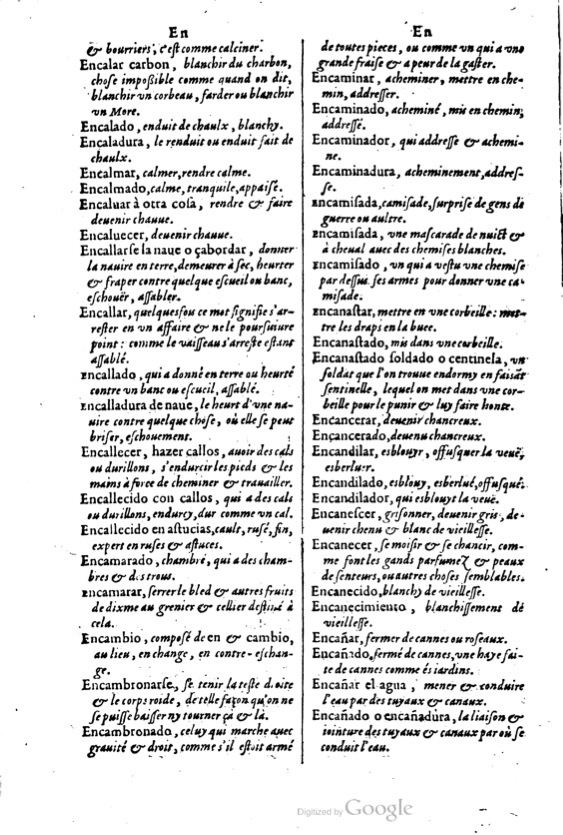 En
& bourriers, c'est comme calciner.
Encalar carbon, blanchir du charbon,
chose impoßible comme quand on dit,
blanchir vn corbeau, farder ou blanchir
vn More.
Encalado, enduit de chaulx, blanchy.
Encaladura, le renduit ou enduit fait de
chaulx.
Encalmar, calmer, rendre calme.
Encalmado, calme, tranquile, appaisé.
Encaluar à otra cosa, rendre & faire
deuenir chauue.
Encaluecer, deuenir chauue.
Encallarse la naue o çabordar, donner
la nauire en terre, demeurer à sec, heurter
& fraper contre quelque escueil ou banc,
eschouër, assabler.
Encallar, quelquesfou ce mot signifie s'ar-
rester en vn affaire & ne le poursuiure
point: comme le vaisseau s'arreste estant
assablé.
Encallado, qui a donné en terre ou heurté
contre vn banc ou escueil, assablé.
Encalladura de naue, le heurt d'vne na-
uire contre quelque chose, où elle se peut
briser, eschouement.
Encallecer, hazer callos, auoir des cals
ou durillons, s'endurcir les pieds & les
mains à force de cheminer & trauailler.
Encallecido con callos, qui a des cals
ou durillons, endurcy, dur comme vn cal.
Encallecido en astucias, cault, rusé, fin,
expert en ruses & astuces.
Encamarado, chambré, qui a des cham-
bres & des trous.
Encamarar, serrer le bled & autres fruits
de dixme au grenier & cellier destiné à
cela.
Encambio, composé de en & cambio,
au lieu, en change, en contre-eschan-
ge.
Encambronarse, se tenir la teste droite
& le corps roide, de telle façon qu'on ne
se puisse baisser ny tourner ça & là.
Encambronado, celuy qui marche auec
grauité & droit, comme s'il estoit armé
En
de toutes pieces, ou comme vn qui a vne
grande fraise & a peur de la gaster.
Encaminar, acheminer, mettre en che-
min, addresser.
Encaminado, acheminé, mis en chemin,
addressé.
Encaminador, qui addresse & achemi-
ne.
Encaminadura, acheminement, addres-
se.
Encamisada, camisade, surprise de gens de
guerre ou aultre.
Encamisada, vne mascarade de nuict &
à cheual auec des chemises blanches.
Encamisado, vn qui a vestu vne chemise
par dessus ses armes pour donner vne ca-
misade.
Encanastar, mettre en vne corbeille: met-
tre les draps en la buee.
Encanastado, mis dans vne corbeille.
Encanastado soldado o centinela, vn
soldat que l'on trouue endormy en faisāt
sentinelle, lequel on met dans vne cor-
beille pour le punir & luy faire honte.
Encancerar, deuenir chancreux.
Encancerado, deuenu chancreux.
Encandilar, esblouyr, offusquer la veuë,
esberluer.
Encandilado, esblouy, esberlué, offusqué.
Encandilador, qui esblouyt la veuë.
Encanescer, grisonner, deuenir gris, de-
uenir chenu & blanc de vieillesse.
Encanecer, se moisir & se chancir, com-
me font les gands parfumez & peaux
de senteurs, ou autres choses semblables.
Encanecido, blanchy de vieillesse.
Encanecimiento, blanchissement de
vieillesse.
Encañar, fermer de cannes ou roseaux.
Encañado, fermé de cannes, vne haye fai-
te de cannes comme és iardins.
Encañar el agua, mener & conduire
l'eau par des tuyaux & canaux.
Encañado o encañadura, la liaison &
iointure des tuyaux & canaux par où se
conduit l'eau.
Digitized by Google